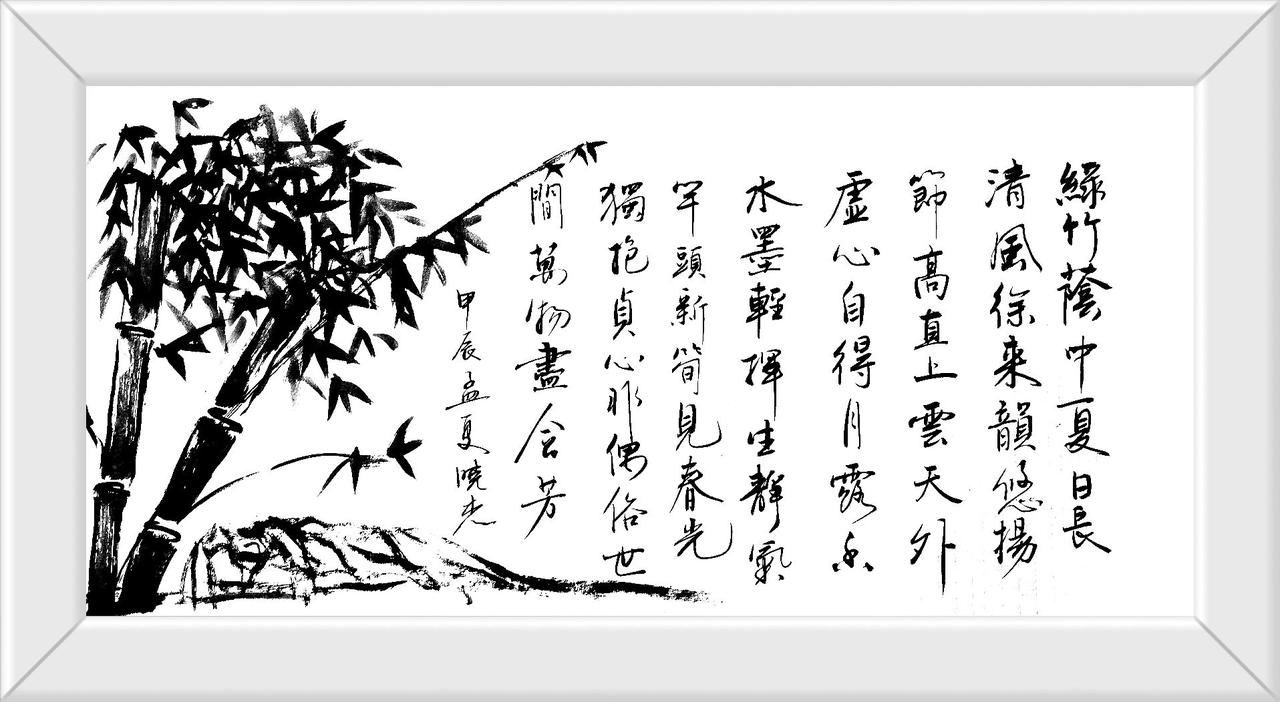 綠竹蔭中夏日長
清風徐来韻悠揚
節高直上雲天外
虛心自得月露香
水墨輕揮生靜氣
竿頭新筍見春光
獨抱貞心非偶俗世
間萬物盡含芳
甲辰孟夏曉光